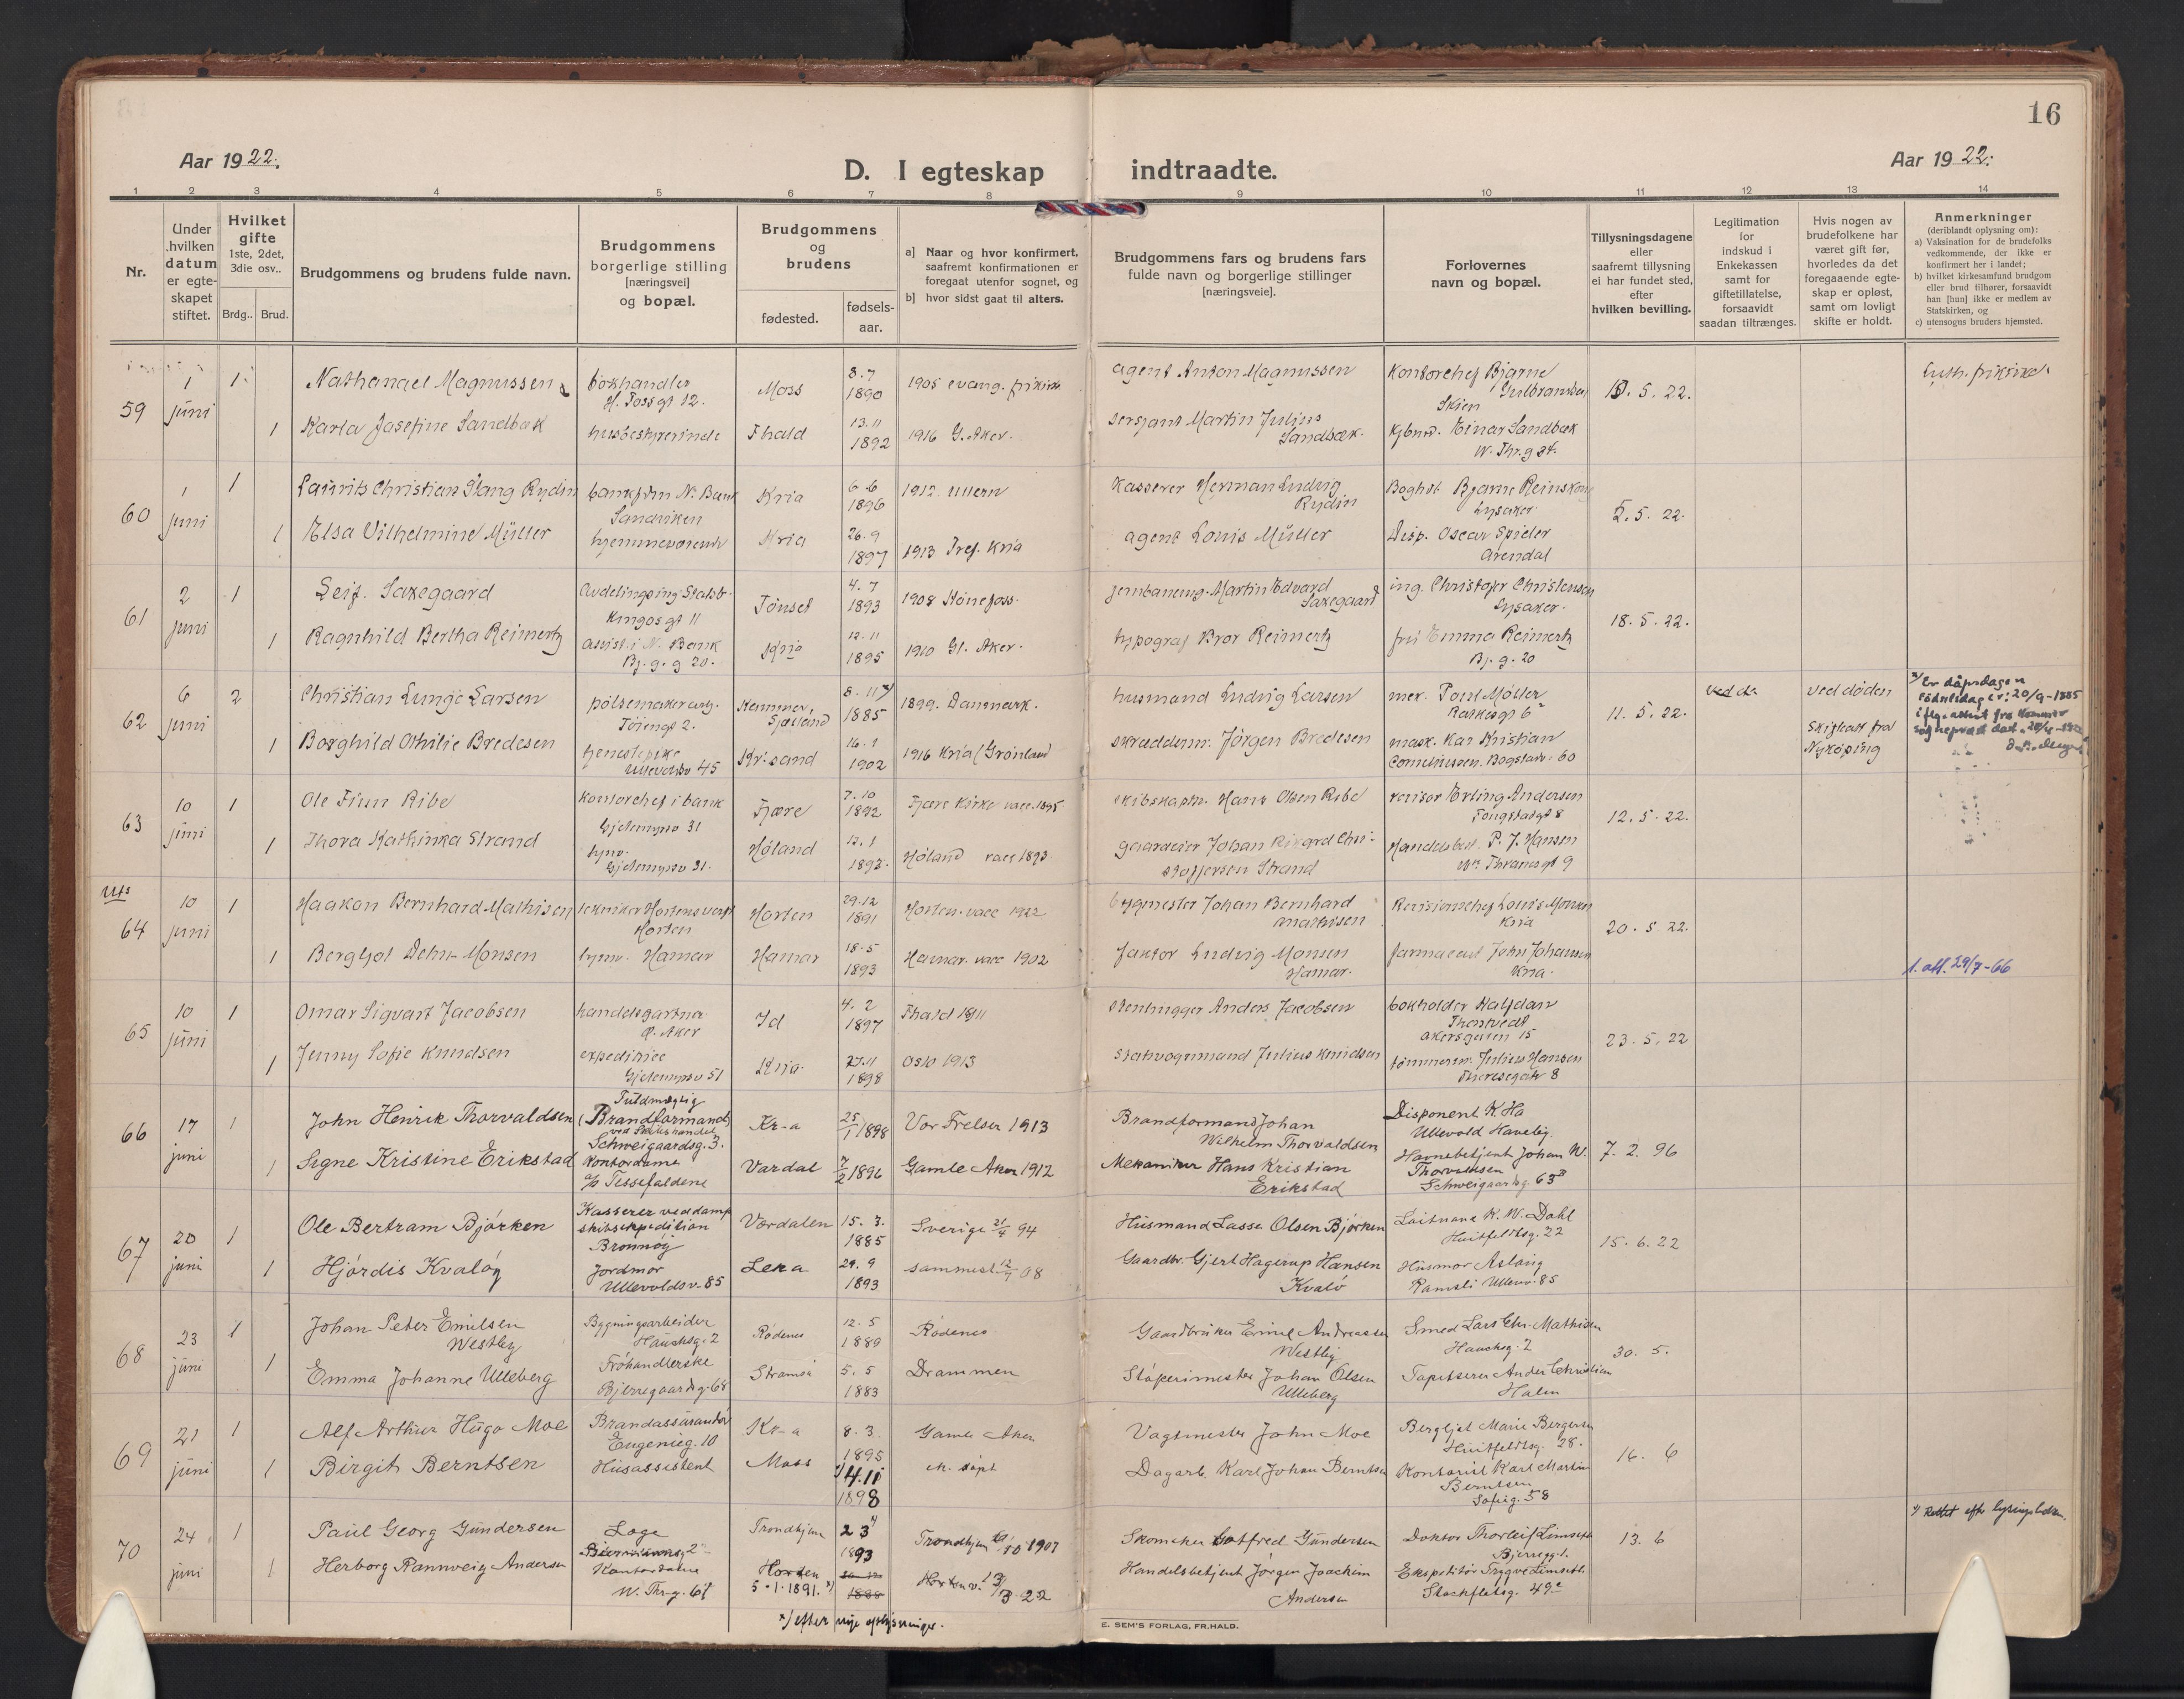 16
Aar 1922.
D. I egteskap indtraadte.
Aar 1922.
1 2 3 4 5 6 7 8 9 10 11 12 13 14
Nr.
Under hvilken datum er egte-skapet stiftet.
Hvilket gifte 1ste, 2det, 3die osv..
Brdg.. Brud.
Brudgommens og brudens fulde navn.
Brudgommens borgerlige stilling [næringsvei] og bopæl.
Brudgommens og brudens
fødested.
fødsels-aar.
a] Naar og hvor konfirmert, saafremt konfirmationen er foregaat utenfor sognet, og
b] hvor sidst gaat til alters.
Brudgommens fars og brudens fars fulde navn og borgerlige stillinger [næringsveie].
Forlovernes navn og bopæl.
Tillysningsdagene eller saafremt tillysning ei har fundet sted, efter hvilken bevilling.
Legitimation for indskud i Enkekassen samt for giftetillatelse, forsaavidt saadan tiltrænges.
Hvis nogen av brudefolkene har været gift før, hvorledes da det foregaaende egte-skap er opløst, samt om lovligt skifte er holdt.
Anmerkninger
(deriblandt oplysning om):
a) Vaksination for de brudefolks vedkommende, der ikke er konfirmert her i landet;
b) hvilket kirkesamfund brudgom eller brud tilhører, forsaavidt han [hun] ikke er medlem av Statskirken, og
c) utensogns bruders hjemsted.
59 1 juni 1 Nathanael Magnussen bokhandler H. Fossgt 12. Moss 8.7 1890 1905 evang. frikirke agent Anton Magnussen Kontorchef Bjarne Gulbrandsen Skien 10.5.22. Luth. frikirke
1 Karla Josefine Sandbæk husbestyrerinde Fhald 13.11 1892 1916 G. Aker. sersjant Martin Julius Sandbæk. Kjbmd. Einar Sandbæk W. Thr.g 84.
60 1 juni 1 Laurits Christian Stang Rydin bankfm N. Bank Sandviken Kria 6.6 1896 1912 Ullern Kasserer Herman Ludvig Rydin Boghol Bjarne Lysaker. 2.5.22.
1 Elsa Vilhelmine Müller hjemmeværende Kria 26.9 1897 1913 Tref. Kria agent Louis Müller Disp. Oscar Spieler Arendal
61 2 juni 1 Leif. Saxegaard Avdelingsing. Statsb. Kingosgt 11 Tönset 4.7 1893 1908 Hönefoss. Martin Edvard Saxegaard ing. Christofer Christensen Lysaker. 18.5.22.
1 Ragnhild Bertha Reimertz assist. i N. Bank Bj.g.g 20. Kria 12.11 1895 1910 Gl. Aker. typograf Bror Reimertz frü Emma Reimertz Bj.g.20
62 6 juni 2 Christian Lunge Larsen pölsemaker Töiengt 2. Kemner, Sjælland 8.11 x) 1885 1899. Danmark. husmand Ludvig Larsen mek. Poul Möller Raskesgt 6 11.5.22. ved d. ved döden Skifteatt fra Nyköping x) Er dåpsdagen Födselsdag er: 20/9-1885 iflg. attest fra Kemner sogneprest
1 Borghild Othilie Bredesen tjenestepike Ullevoldsv 45 Kr.sand 16.1 1902 1916 Kria (Grönland) skreddersv. Jörgen Bredesen mask. Kar Kristian Corneliussen. Bogstadv. 60
63 10 juni 1 Ole Finn Ribe Kontorchef i bank Gjetemyrsv 31 Fjære 7.10 1892 Fjære Kirke vacc. 1895 skibskaptn. Hans Olsen Ribe revisor Erling Andersen Fougstadgt 8 12.5.22.
1 Thora Kathinka Strand hjmv. Gjetemyrsv 31. Höland 12.1 1892. Höland vacc 1893 gaardeier Johan Rikard Chri-stoffersen Strand Handelsbet. P. J. Hansen Wm Thranesgt 9
64 10 juni 1 Haakon Bernhard Mathisen tekniker Hortens verft Horten Horten 29.12 1891 Horten. vacc 1922 bygmester Johan Bernhard Mathisen Revisionschef Louis Monsen Kria 20.5.22.
1 Bergljot Dehn-Monsen hjmv. Hamar Hamar 18.5 1893 Hamar. vacc 1902 faktor Ludvig Monsen Hamar. farmaceut John Johansen Kria. 1. att. 29/7-66
65 10 juni 1 Omar Sigvart Jacobsen handelsgartner Ö. Aker Id 4.2 1897 Fhald 1911 stenhugger Anders Jacobsen bokholder Halfdan Thostvedt akersgaten 15 23.5.22
1 Jenny Sofie Knudsen expeditrice Gjetemyrsv 51 Kria. 27.11 1898 Oslo 1913 Statsvognmand Julius Knudsen tömmerm. Julius Hansen Theresegatr 8
66 17 juni 1 John Henrik Thorvaldsen Fuldmægtig (Brandformand) Schweigaardsg. 3. Kr-a 25/1 1898 Vor Frelser 1913 Brandformand Johan Wilhelm Thorvaldsen Disponent K. Ha Ullevold Haveby. 7.2.96
1 Signe Kristine Erikstad Kontordame a/s Tessefaldene Vardal 7/2 1896 Gamle Aker 1912 Mekaniker Hans Kristian Erikstad Havnebetjent Johan W. Thorvaldsen Schweigaardsg. 63
67 20 juni 1 Ole Bertram Bjørken Kasserer ved damp skibsekspedition Brønnøy Værdalen 15.3. 1885 Sverige 21/4 94 Husmand Lasse Olsen Bjørken Løitnant K. W. Dahl Huitfeldtsg. 22 15.6.22
1 Hjördis Kvalöy Jordmor Ullevoldsv. 85 Leka 29.9 1893 sammest. 12/7 08 Gaardbr. Gjert Hagerup Hansen Kvalö Husmor Aslaug Ramsli Ullevv. 85
68 23 juni 1 Johan Peter Emilsen Westby Bygningsarbeider Hauchsg. 2 Rödenes 12.5 1889 Rödenes Gaardbruker Emil Andreassen Westby Smed Lars Chr. Mathisen Hauchsg. 2 30.5.
1 Emma Johanne Ulleberg Fröhandlerske Bjerregaardsg. 68 Strømsø 5.5 1883 Drammen Støperimester Johan Olsen Ulleberg Tapetserer Anders Christian Halen
69 21 juni 1 Alf Arthur Hugo Moe Brandassurandør Eugenieg. 10 Kr-a 8.3. 1895 Gamle Aker Vagtmester John Moe Bergljot Marie Bergersen Huitfeldtsg. 28. 16.6
1 Birgit Berntsen Husassistent Moss 4.11 1898 Dagarb. Karl Johan Berntsen Kontorist Karl Martin Berntsen Sofieg. 58
70 24 juni 1 Paul Georg Gundersen Læge Trondhjem 23 1893 Trondhjem 6/10 1907 Skomaker Gotfred Gundersen Doktor Thorleif Limseth Bjerregg. 1. 13.6 x) Rettet efter lysningsboken.
1 Herborg Rannveig Andersen Kontordame W. Thr.g. 61 Horten 5-1-1891. x) 1888 Horten v. 13/3 22 Handelsbetjent Jørgen Joachim Andersen Ekspeditör Trygve Limseth Stockfletsg. 49
x) efter nye oplysninger.
E. SEM'S FORLAG, FR.HALD.